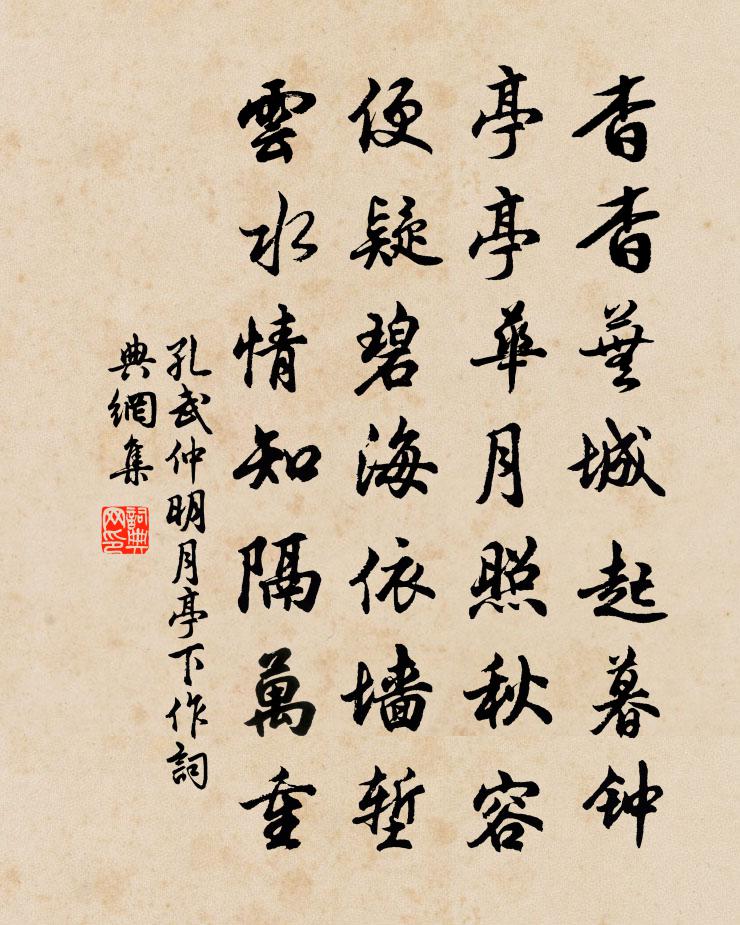 杳杳蕪城起暮钟
亭亭華月照秋容
便疑碧海依墙堑
雲水情知隔萬重
孔武仲明月亭下作詞
典網集
詞典
网印